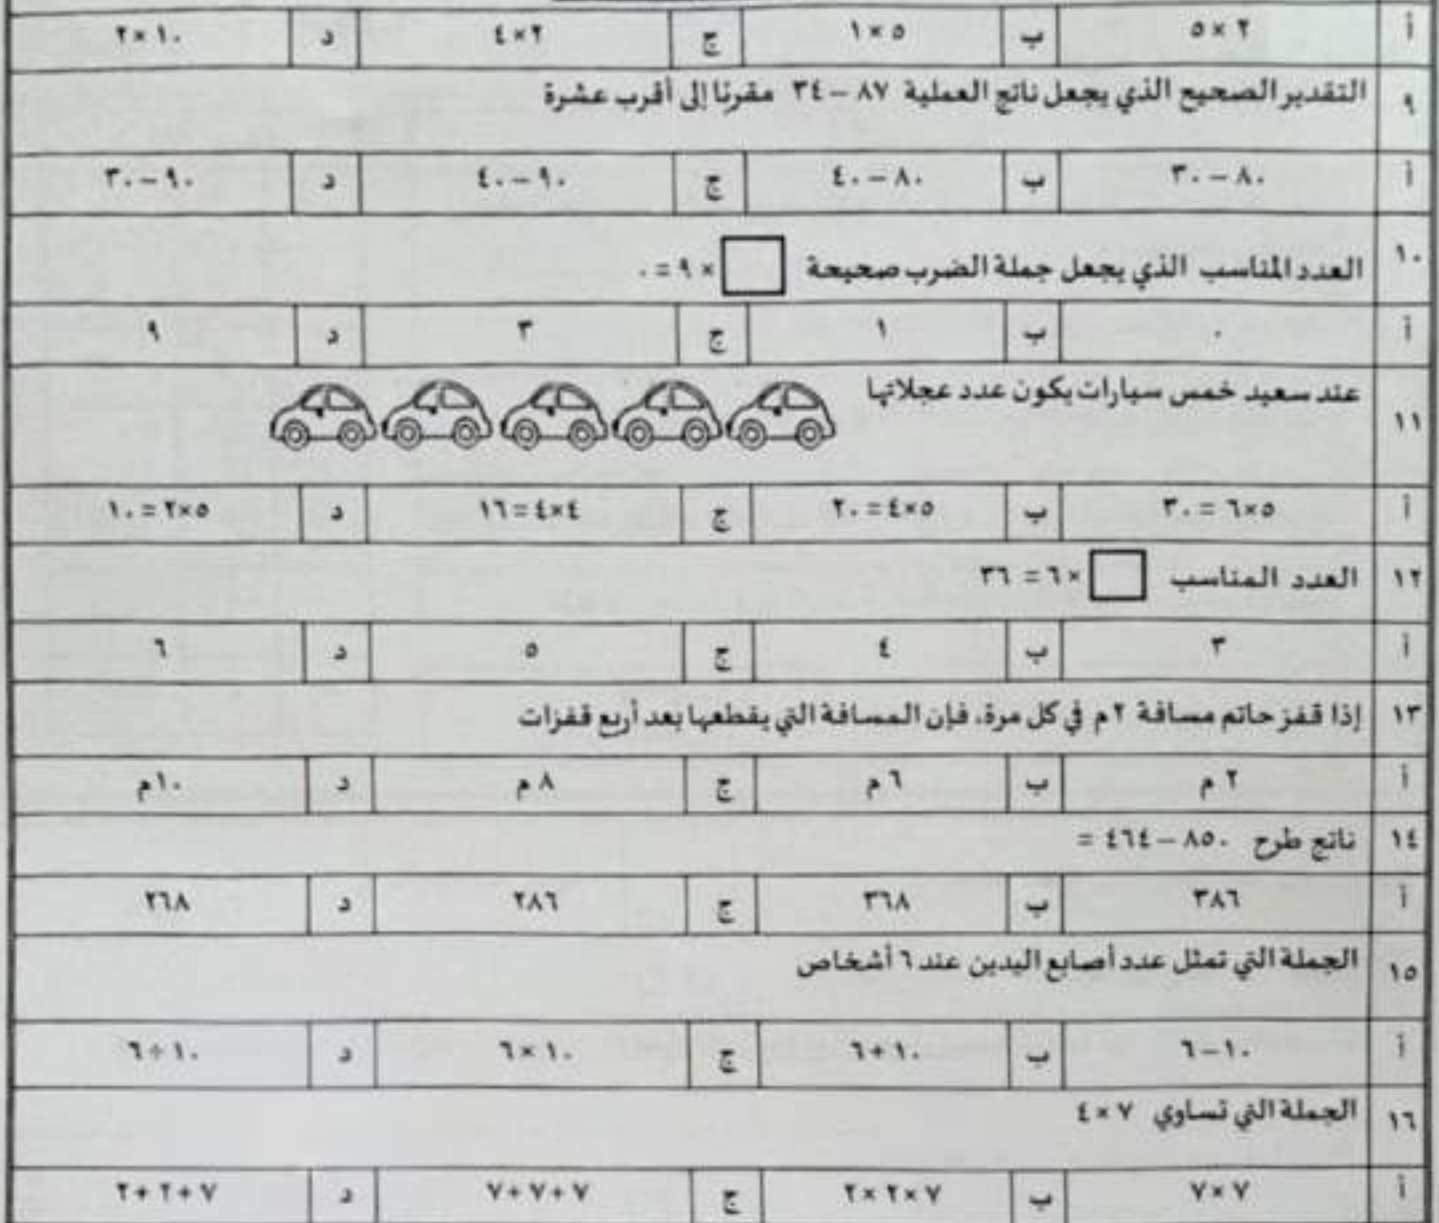 أ ٢ × ٥ ب ٥ × ١ ج ٢ × ٤ د ١٠ × ٢
٩ التقدير الصحيح الذي يجعل ناتج العملية ٨٧ – ٣٤ مقربًا إلى أقرب عشرة
أ ٨٠ – ٣٠ ب ٨٠ – ٤٠ ج ٩٠ – ٤٠ د ٩٠ – ٣٠
١٠ العدد المناسب الذي يجعل جملة الضرب صحيحة × ٩ = ٠
أ ٠ ب ١ ج ٣ د ٩
١١ عند سعيد خمس سيارات يكون عدد عجلاتها
أ ٥×٦ = ٣٠ ب ٥×٤ = ٢٠ ج ٤×٤ = ١٦ د ٥×٢ = ١٠
١٢ العدد المناسب × ٦ = ٣٦
أ ٣ ب ٤ ج ٥ د ٦
١٣ إذا قفز حاتم مسافة ٢ م في كل مرة، فإن المسافة التي يقطعها بعد أربع قفزات
أ ٢ م ب ٦ م ج ٨ م د ١٠م
١٤ ناتج طرح ٨٥٠ – ٤٦٤ =
أ ٣٨٦ ب ٣٦٨ ج ٢٨٦ د ٢٦٨
١٥ الجملة التي تمثل عدد أصابع اليدين عند ٦ أشخاص
أ ١٠ – ٦ ب ١٠ + ٦ ج ١٠ × ٦ د ١٠ ÷ ٦
١٦ الجملة التي تساوي ٧ × ٤
أ ٧ × ٧ ب ٧ × ٢ × ٢ ج ٧ + ٧ + ٧ د ٧ + ٢ + ٢